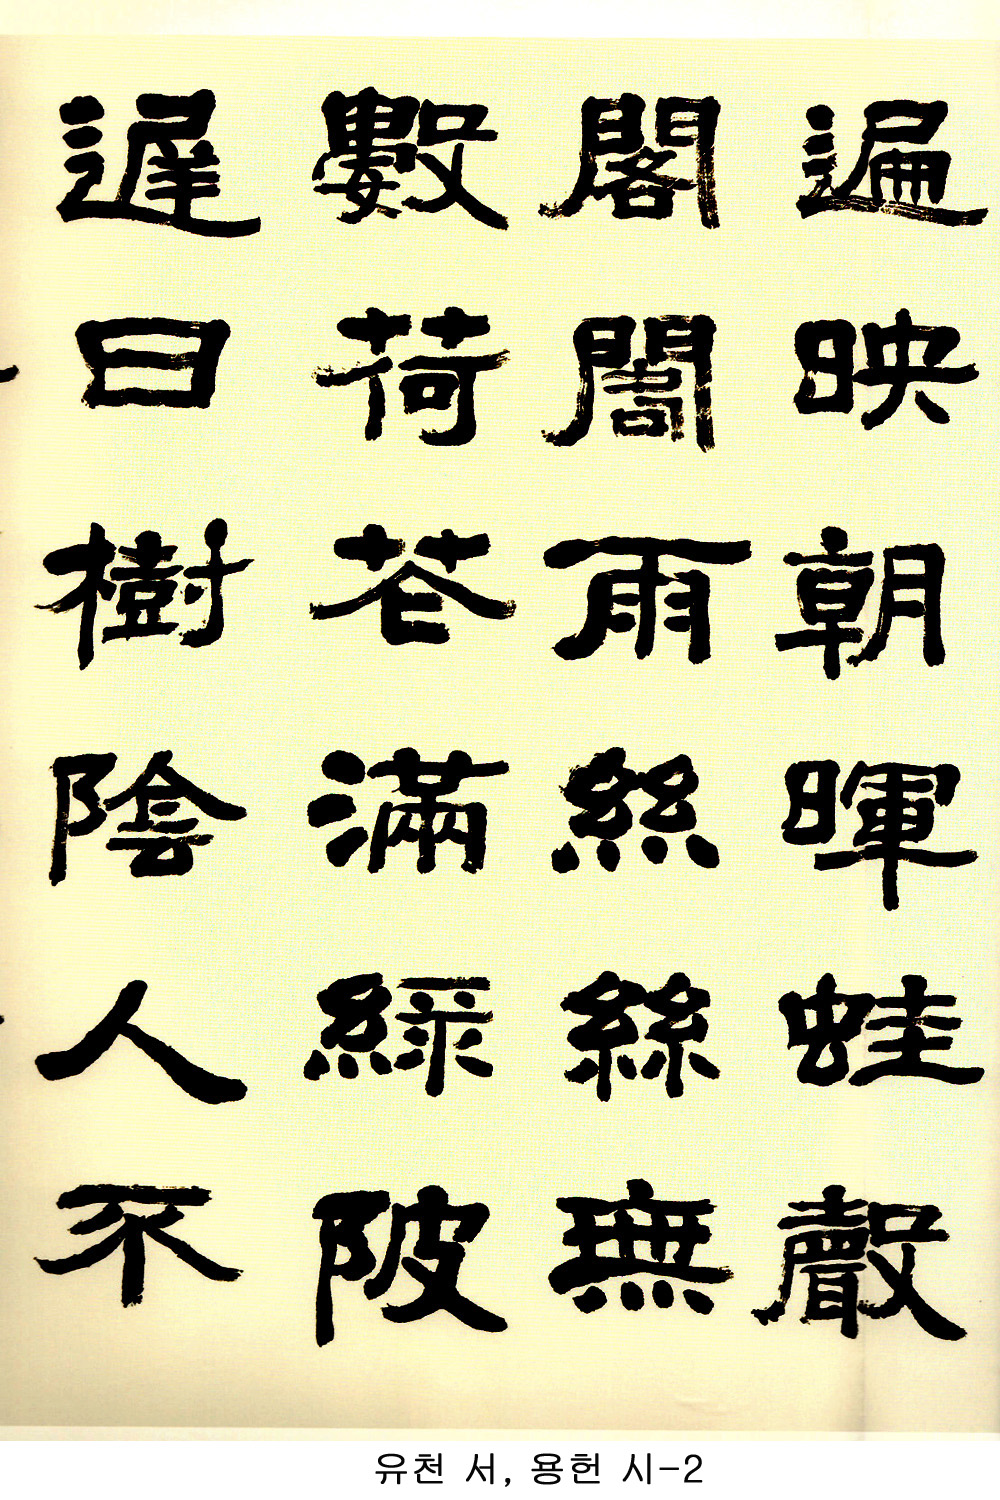 遍映朝暉蛙聲
閣閣雨絲絲無
數荷花滿綠陂
遲日樹陰人不
유천 서, 용헌 시-2